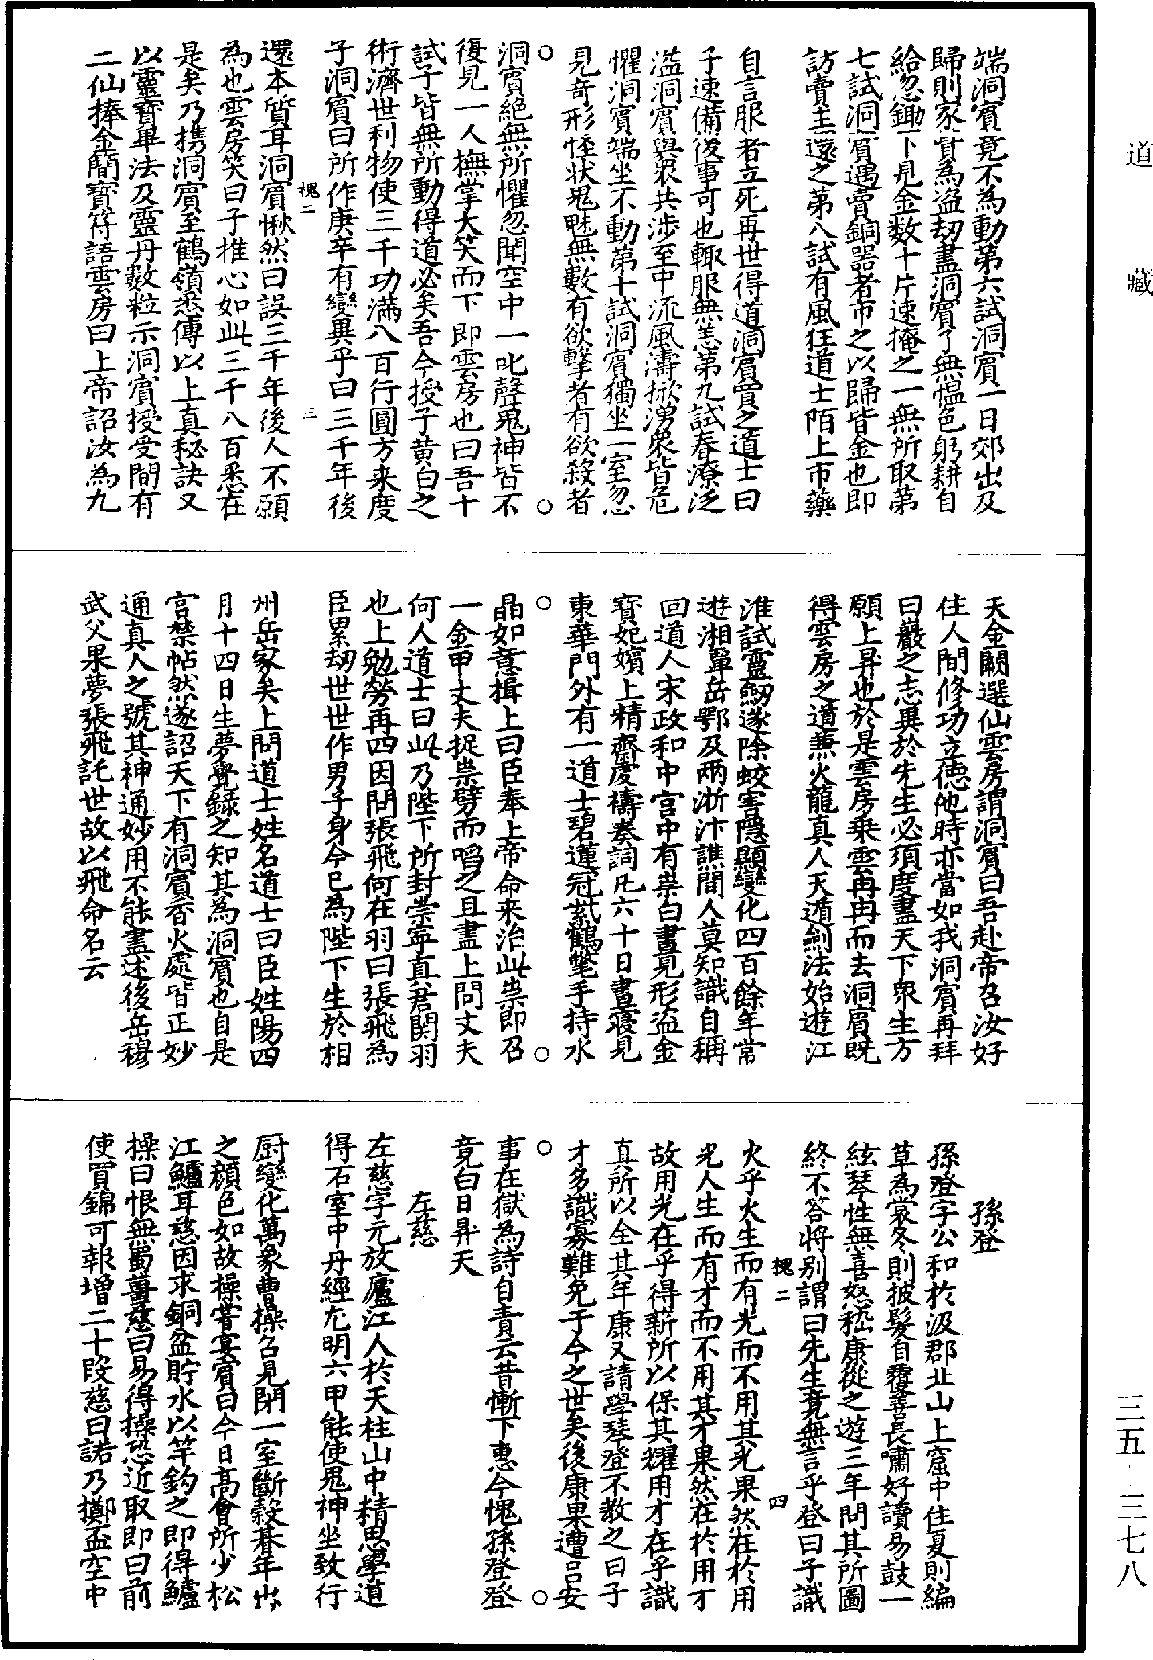 道藏
端洞賓竟不為動第六試洞賓一日郊出及
歸則家貲為盜劫盡洞賓了無慍色躬耕自
給忽鋤下見金數十片速掩之一無所取第
七試洞賓遇賣銅器者市之以歸皆金也即
訪賣主還之第八試有風狂道士陌上市藥
自言服者立死再世得道洞賓買之道士曰
子速備後事可也輒服無恙第九試春潦泛
溢洞賓與眾共涉至中流風濤掀湧眾皆危
懼洞賓端坐不動第十試洞賓獨坐一室忽
見奇形怪狀鬼魅無數有欲擊者有欲殺者
洞賓絕無所懼忽聞空中一叱聲鬼神皆不
復見一人撫掌大笑而下即雲房也曰吾十
試子皆無所動得道必矣吾今授子黃白之
術濟世利物使三千功滿八百行圓方來度
子洞賓曰所作庚辛有變異乎曰三千年後
槐二
三
還本質耳洞賓愀然曰誤三千年後人不願
為也雲房笑曰子推心如此三千八百悉在
是矣乃携洞賓至鶴嶺悉傳以上真秘訣又
以靈寶畢法及靈丹數粒示洞賓授受間有
二仙捧金簡寶符語雲房曰上帝詔汝為九
天金闕選仙雲房謂洞賓曰吾赴帝召汝好
住人間修功立德他時亦當如我洞賓再拜
曰巖之志異於先生必須度盡天下眾生方
願上昇也於是雲房乘雲冉冉而去洞賓既
得雲房之道兼火龍真人天遁劍法始遊江
淮試靈劒遂除蛟害隱顯變化四百餘年常
遊湘單岳鄂及兩浙汴譙間人莫知識自稱
回道人宋政和中宮中有祟白晝見形盜金
寶妃嬪上精齋虔禱奏詞凡六十日晝寢見
東華門外有一道士碧蓮冠紫鶴氅手持水
晶如意揖上曰臣奉上帝命來治此祟即召
一金甲丈夫捉祟劈而啗之且盡上問丈夫
何人道士曰此乃陛下所封崇寧真君關羽
也上勉勞再四因問張飛何在羽曰張飛為
臣累劫世世作男子身今已為陛下生於相
州岳家矣上問道士姓名道士曰臣姓陽四
月十四日生夢覺錄之知其為洞賓也自是
宮禁帖然遂詔天下有洞賓香火處皆正妙
通真人之號其神通妙用不能盡述後岳穆
武父果夢張飛託世故以飛命名云
孫登
孫登字公和於汲郡北山上窟中住夏則編
草為裳冬則披髮自覆善長嘯好讀易鼓一
絃琴性無喜怒嵇康從之遊三年問其所圖
終不答將別謂曰先生竟無言乎登曰子識
槐二
四
火乎火生而有光而不用其光果然在於用
光人生而有才而不用其才果然在於用才
故用光在乎得薪所以保其耀用才在乎識
真所以全其年康又請學琴登不教之曰子
才多識寡難免于今之世矣後康果遭呂安
事在獄為詩自責云昔慚下惠今愧孫登登
竟白日昇天
左慈
左慈字元放廬江人於天柱山中精思學道
得石室中丹經尤明六甲能使鬼神坐致行
厨變化萬象曹操召見閉一室斷穀朞年出
之顏色如故操嘗宴賓曰今日高會所少松
江鱸耳慈因求銅盆貯水以竿釣之即得鱸
操曰恨無蜀薑慈曰易得操恐近取即曰前
使買錦可報增二十段慈曰諾乃擲盃空中
三五·二七八